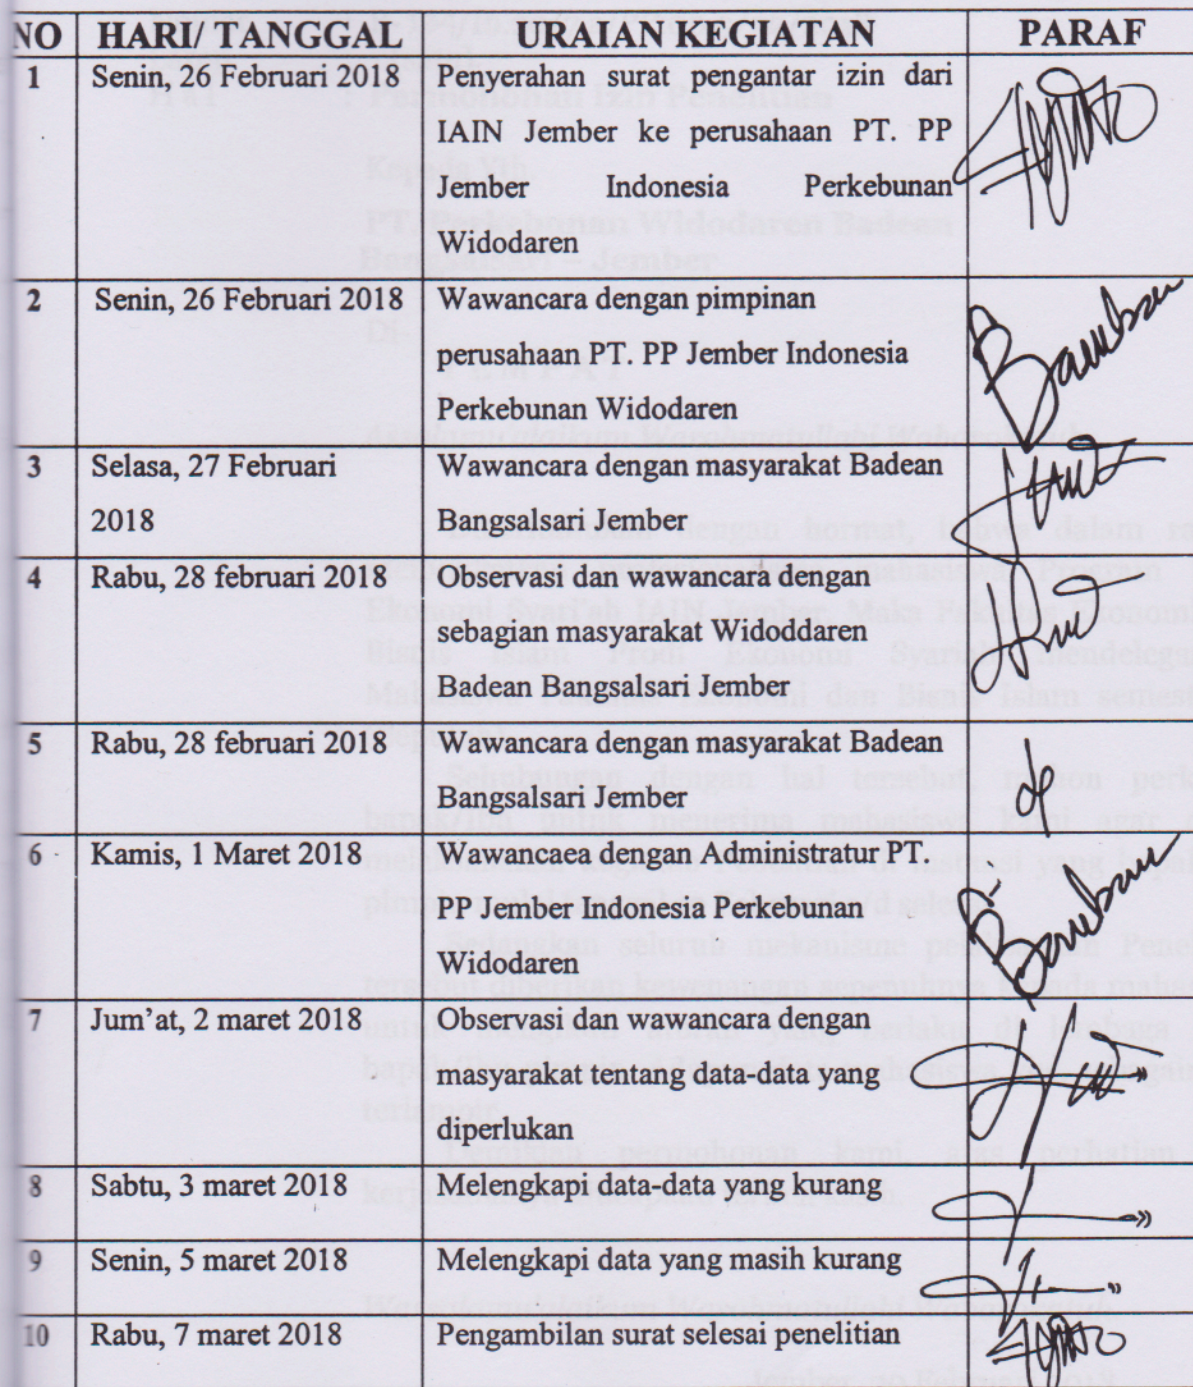 NO HARI/TANGGAL URAIAN KEGIATAN PARAF
1 Senin, 26 Februari 2018 Penyerahan surat pengantar izin dari
IAIN Jember ke perusahaan PT. PP
Jember Indonesia Perkebunan
Widodaren
2 Senin, 26 Februari 2018 Wawancara dengan pimpinan
perusahaan PT. PP Jember Indonesia
Perkebunan Widodaren
3 Selasa, 27 Februari Wawancara dengan masyarakat Badean
2018 Bangsalsari Jember
4 Rabu, 28 februari 2018 Observasi dan wawancara dengan
sebagian masyarakat Widoddaren
Badean Bangsalsari Jember
5 Rabu, 28 februari 2018 Wawancara dengan masyarakat Badean
Bangsalsari Jember
6 Kamis, 1 Maret 2018 Wawancaea dengan Administratur PT.
PP Jember Indonesia Perkebunan
Widodaren
7 Jum'at, 2 maret 2018 Observasi dan wawancara dengan
masyarakat tentang data-data yang
diperlukan
8 Sabtu, 3 maret 2018 Melengkapi data-data yang kurang
9 Senin, 5 maret 2018 Melengkapi data yang masih kurang
10 Rabu, 7 maret 2018 Pengambilan surat selesai penelitian